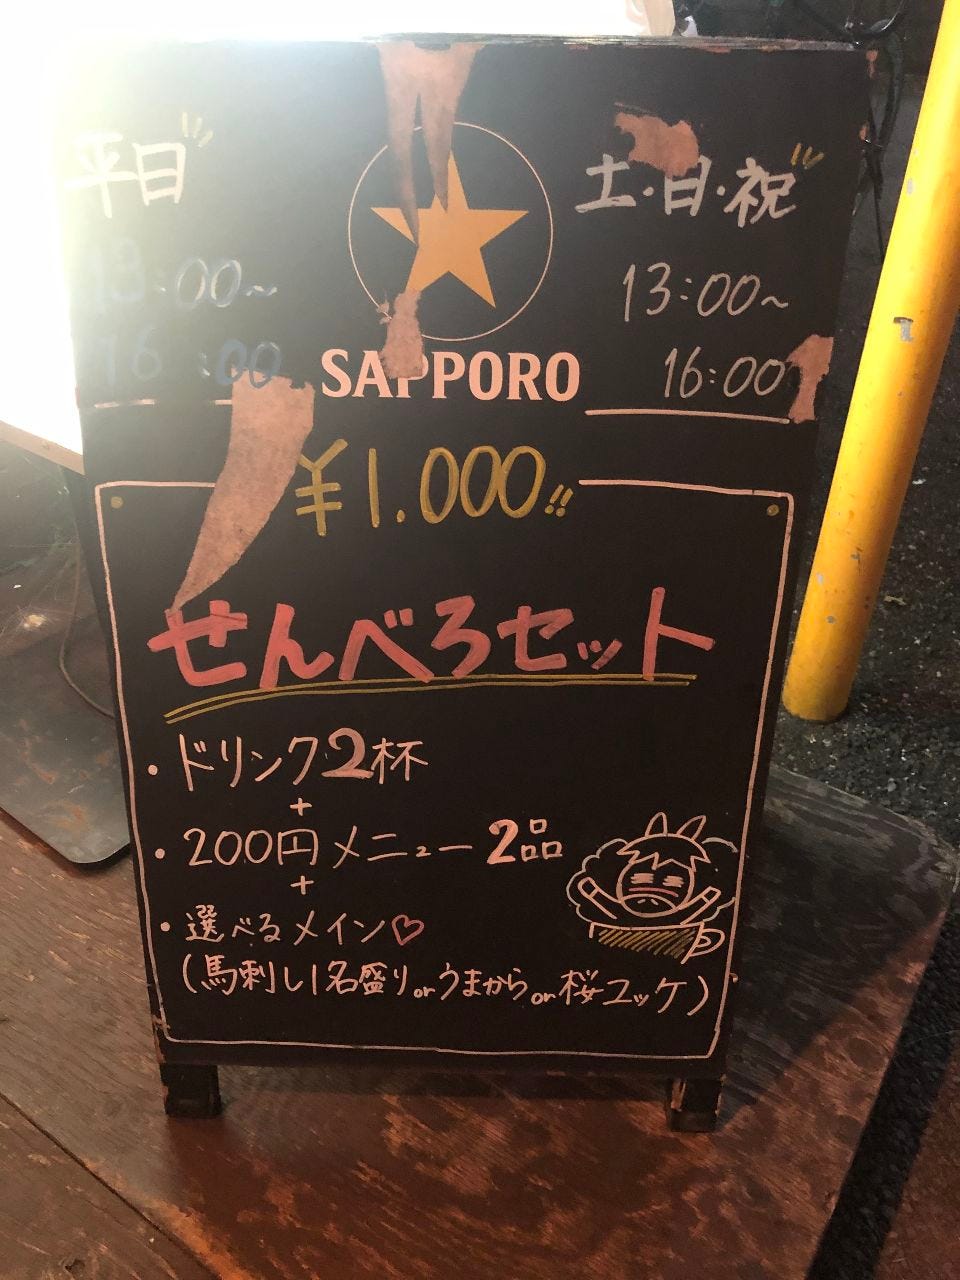 平日
13:00〜
16:00
土・日・祝
13:00〜
16:00
SAPPORO
¥1.000!!
せんべろセット
・ドリンク2杯
+
・200円メニュー2品
+
・選べるメイン♡
(馬刺し1名盛りorうまからor桜ユッケ)